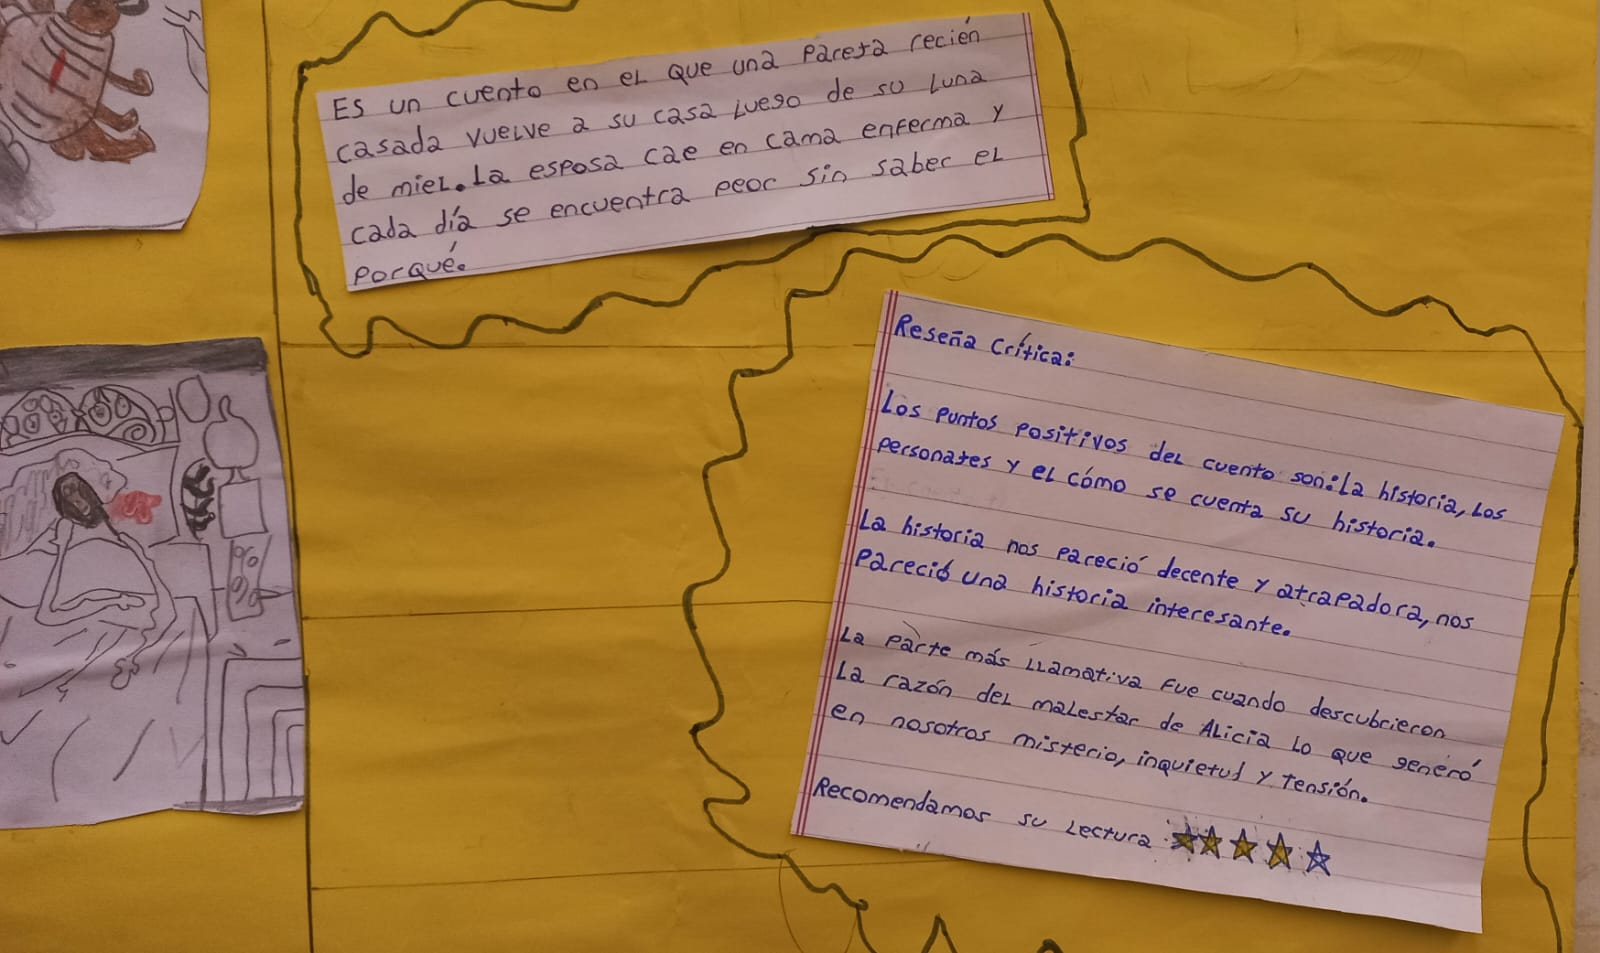 Es un cuento en el que una pareja recién
casada vuelve a su casa luego de su luna
de miel. La esposa cae en cama enferma y
cada día se encuentra peor sin saber el
porqué.
Reseña Crítica:
Los puntos positivos del cuento son: la historia, los
personajes y el cómo se cuenta su historia.
La historia nos pareció decente y atrapadora, nos
pareció una historia interesante.
La parte más llamativa fue cuando descubrieron
la razón del malestar de Alicia lo que generó
en nosotros misterio, inquietud y tensión.
Recomendamos su lectura